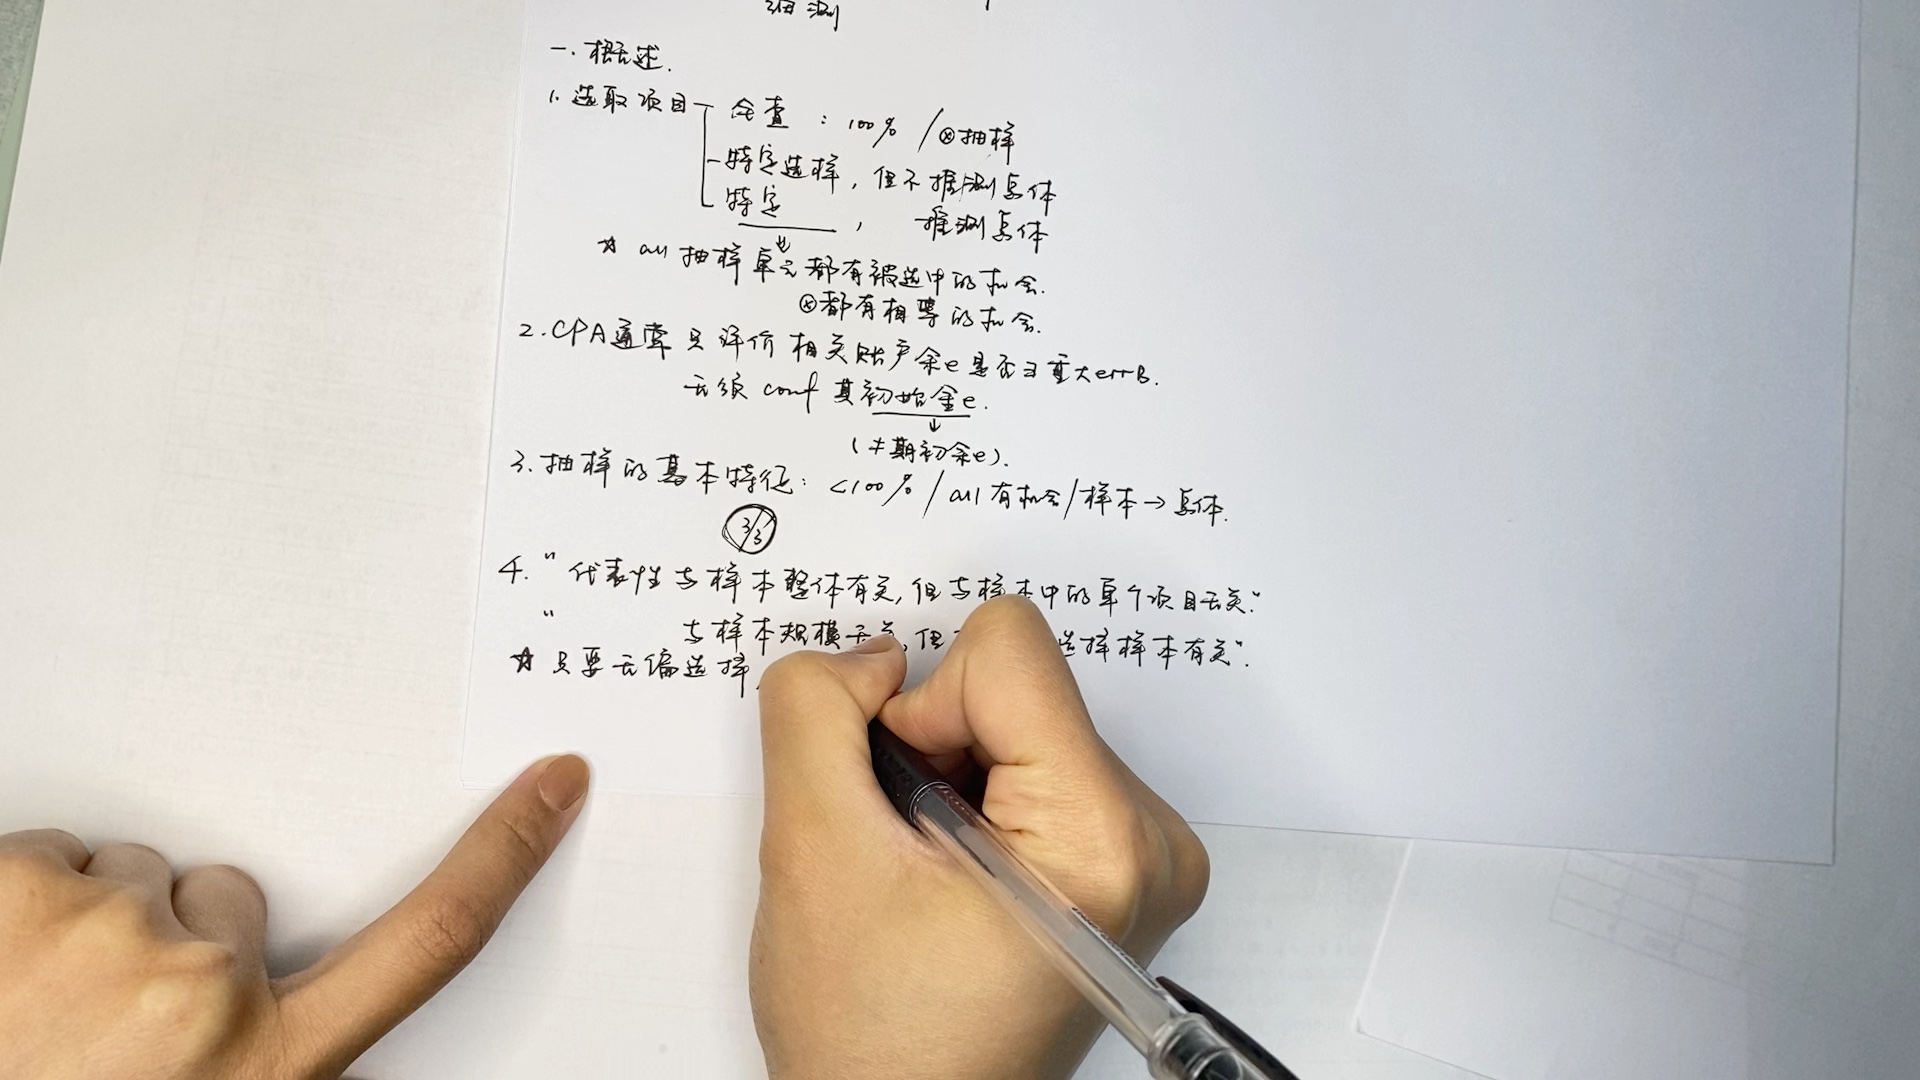 细测
一. 概述.
1. 选取项目 全查 : 100% / ⊗抽样
特定选样, 但不推测总体
特定 , 推测总体
☆ all 抽样单元都有被选中的机会.
⊗都有相等的机会.
2. CPA通常只评价相关账户余e是否∃重大errB.
无须 conf 其初始金e.
(≠期初余e).
3. 抽样的基本特征: <100% / all 有机会/样本→总体.
3/3
4. "代表性与样本整体有关, 但与样本中的单个项目无关."
" 与样本规模无关, 但 选择样本有关".
☆ 只要无偏选择,